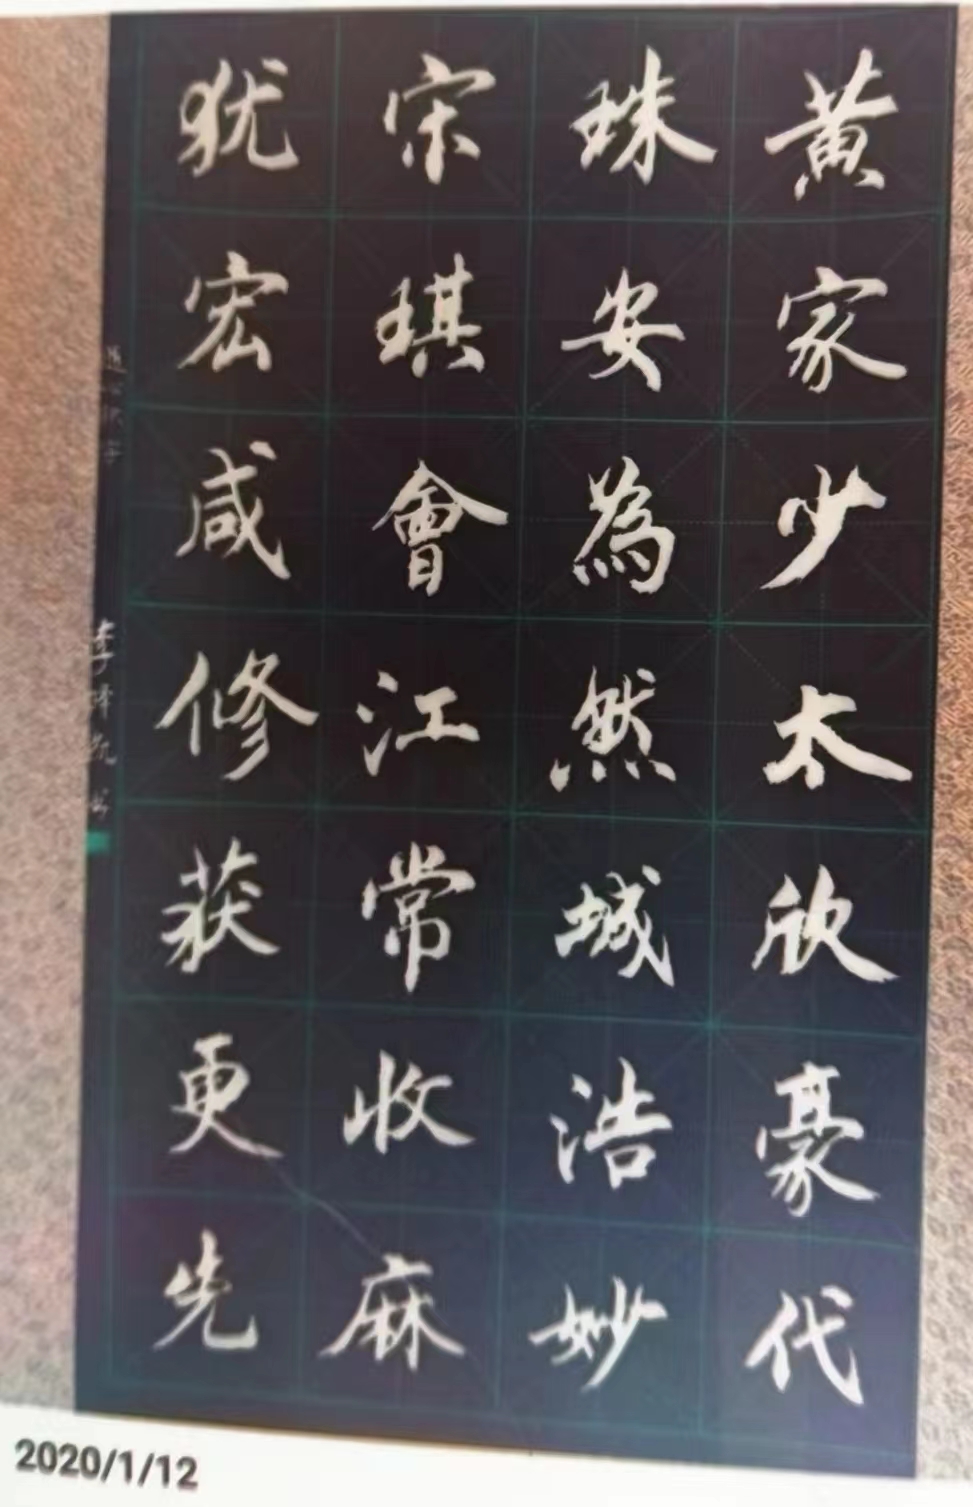 黄家少太欣豪代
珠安為然城浩妙
宋琪會江常收麻
犹宏咸修获更先
2020/1/12